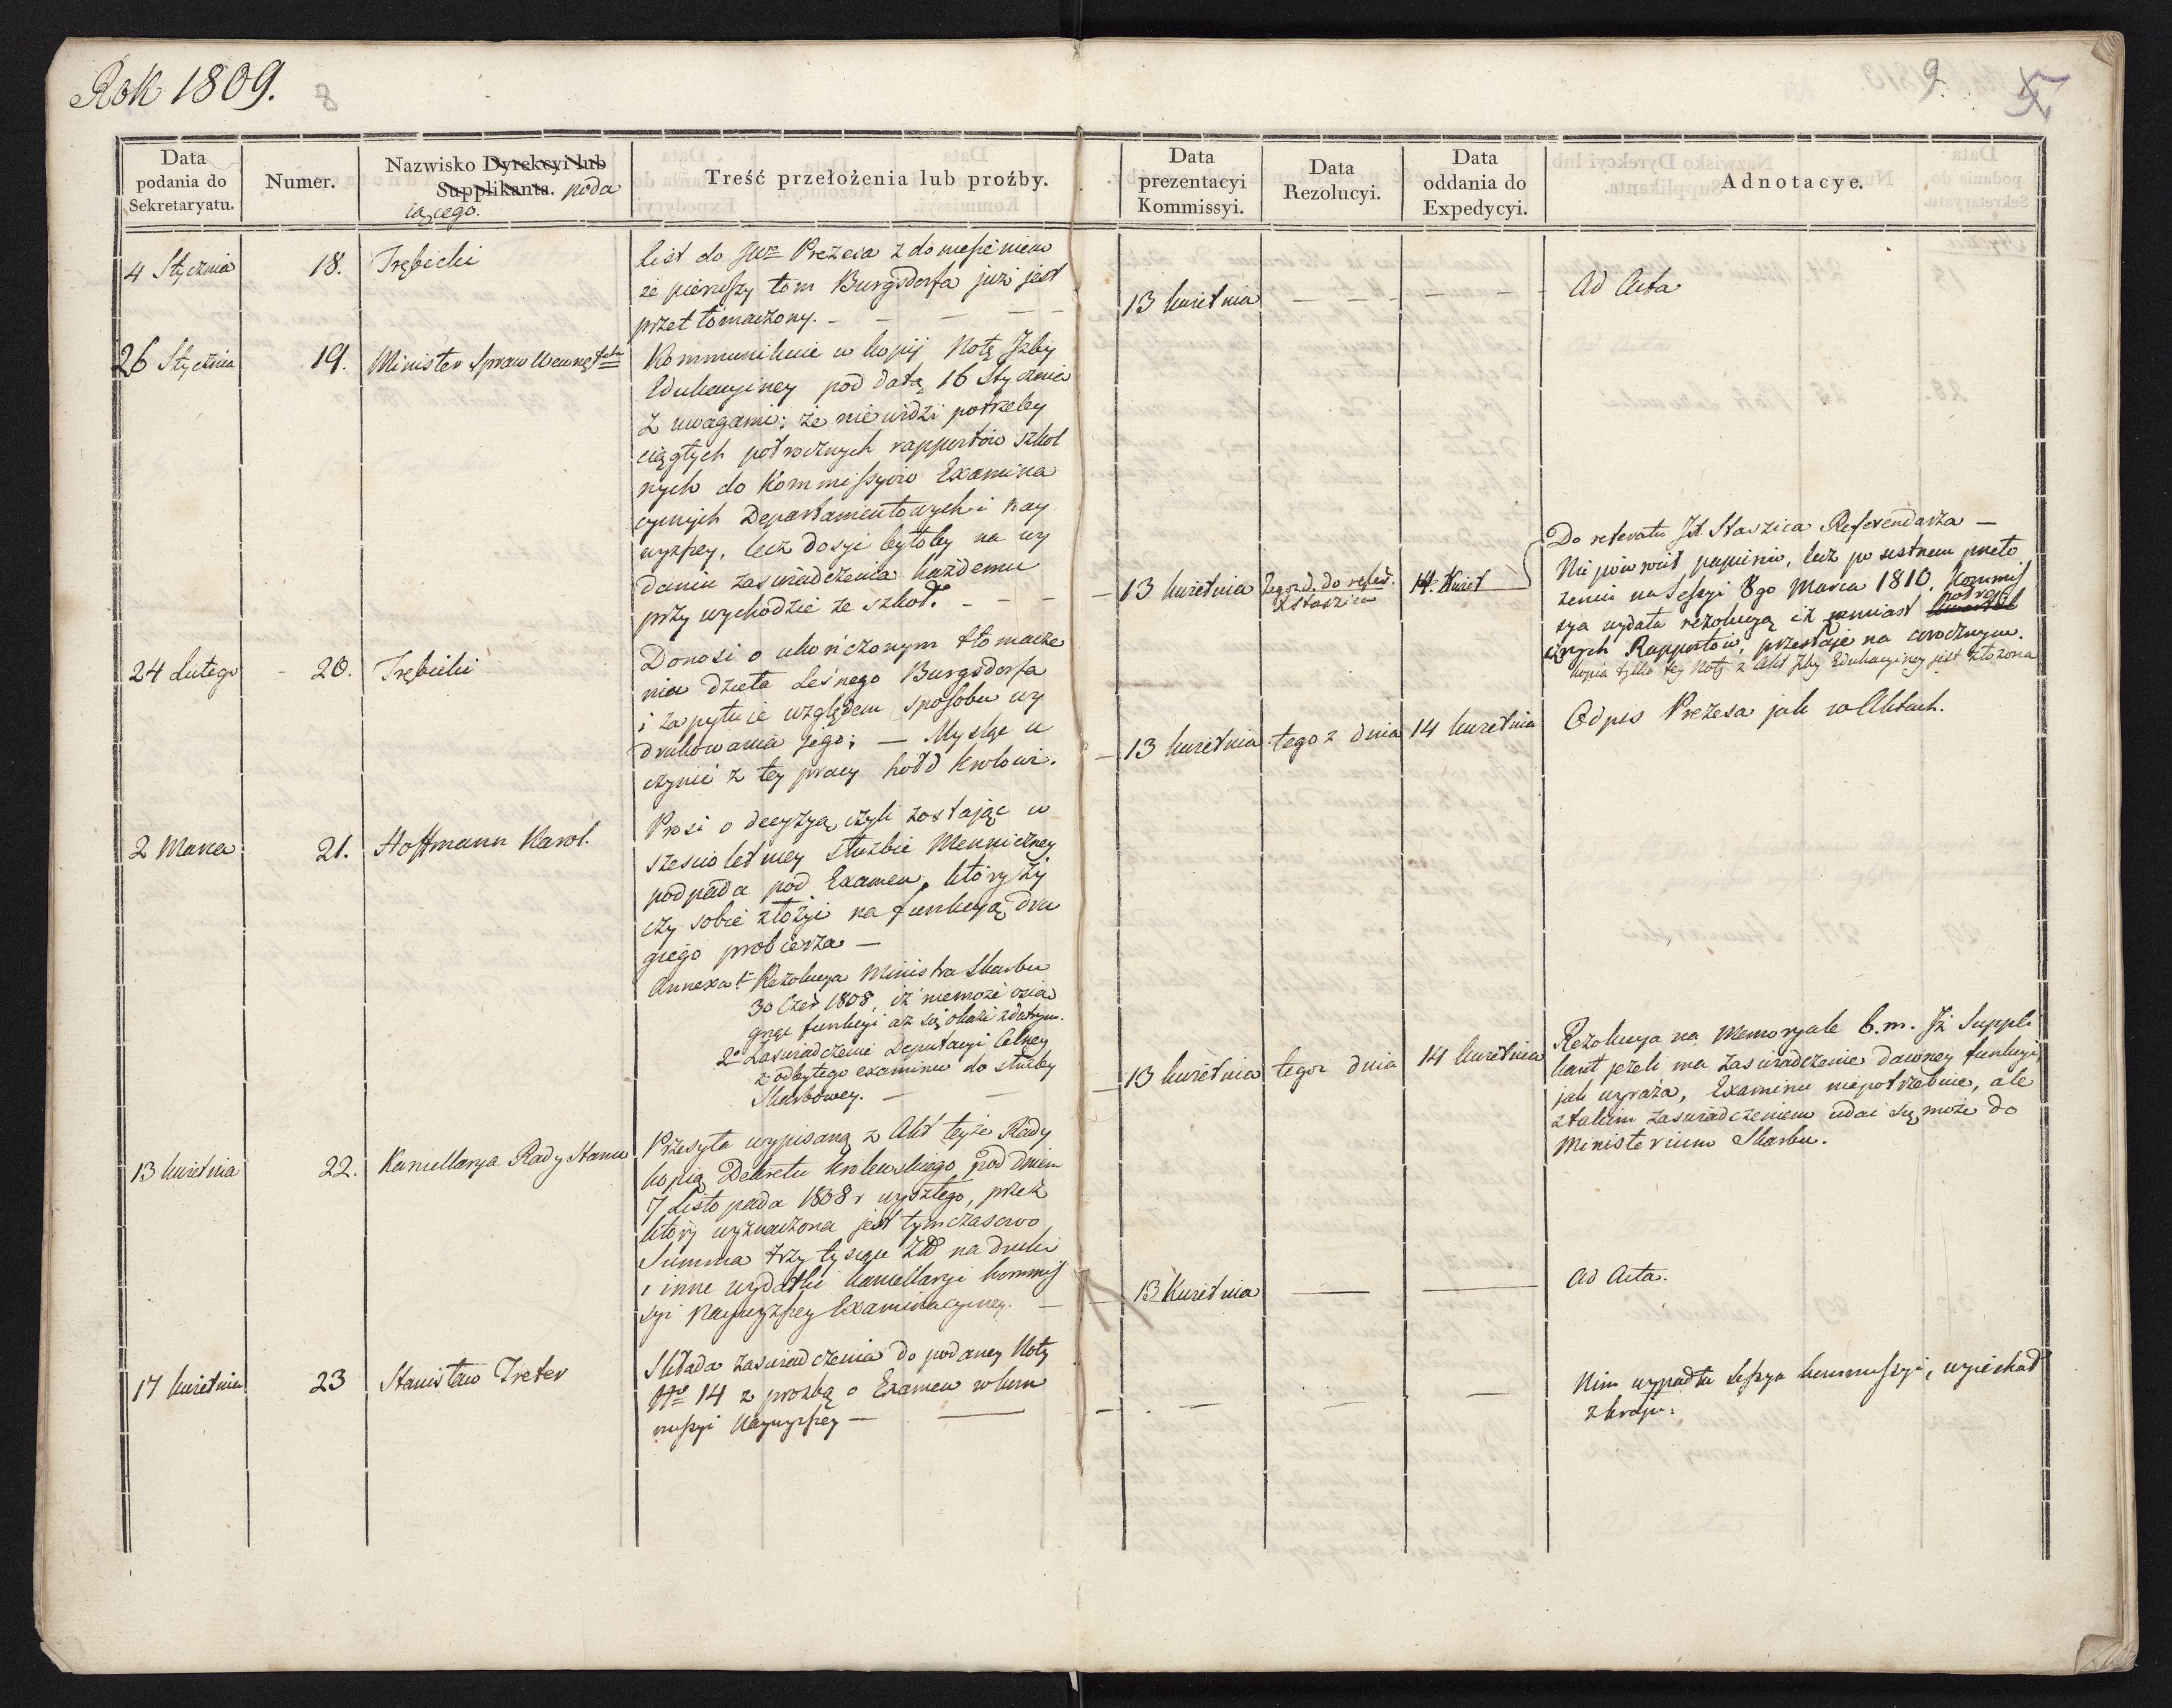 Rok 1809.
8
9.
Data
podania do
Sekretaryatu.
Numer.
Nazwisko Dyrekcyi lub
Supplikanta. poda
iącego.
Treść przełożenia lub proźby.
Data
prezentacyi
Kommissyi.
Data
Rezolucyi.
Data
oddania do
Expedycyi.
Adnotacye.
4 Stycznia
18.
Trębicki
list do JWe Prezesa z doniesieniem
że pierwszy tom Burgsdorfa już jest
przetłómaczony. -
13 kwietnia
Ad Acta
26 Stycznia
19.
Minister Spraw Wewnętch
Kommunikuie w kopij Notę Izby
Edukacyiney pod datą 16 Stycznia
z uwagami: że nie widzi potrzeby
ciągłych półrocznych rapportów szkol
nych do Kommissyów Examina
cyinych Departamentowych i nay
wyższey, lecz dosyć byłoby na wy
daniu zaświadczenia każdemu
przy wychodzie ze szkoł. -
13 kwietnia
Tegoż d. do refer.
X Staszica
14. Kwiet
Do referatu JX. Staszica Referendarza —
Nie powrócił papierów, lecz po ustnem przeło
żeniu na Sessyi 8go Marca 1810. Kommis
sya wydała rezolucyą iż zamiast kwartal półro
cznych Rapportów, przestaje na corocznym.
kopia tylko tey Noty z Akt Izby Edukacyiney jest złożona
24 Lutego
20.
Trębicki
Donosi o ukończonym tłomacze
nia dzieła Leśnego Burgsdorfa
i zapytuie względem sposobu wy
drukowania jego; — Myślę u
czynić z tey pracy hołd Krolowi.
13 kwietnia
tegoż dnia
14 kwietnia
Odpis Prezesa jak w Aktach.
2 Marca
21.
Hoffmann Karol.
Prosi o decyzyą czyli zostając w
sześcioletniey służbie Menniczney
podpada pod Examen, który ży
czy sobie złożyć na funkcyą dru
giego probierza —
Annexa 1o Rezolucya Ministra Skarbu
30 Czer 1808, iż niemoże osią
gnąć funkcyi aż się okaże zdatnym.
2o Zaświadczenie Deputacyi Celney
z odbytego examinu do służby
Skarbowey. —
13 kwietnia
tegoż dnia
14 kwietnia
Rezolucya na Memoryale b.m. Iż Suppli
kant jeżeli ma zaświadczenie dawney funkcyi,
jak wyraża, Examinu niepotrzebuie, ale
z takim zaświadczeniem udać się może do
Ministerium Skarbu.
13 kwietnia
22.
Kancellarya Rady Stanu
Przesyła wypisaną z Akt teyże Rady
kopią Dekretu Krolewskiego pod dniem
7 Listopada 1808 r wyszłego, przez
który wyznaczona jest tymczasowo
Summa trzy tysiące Zł na druki
i inne wydatki kancellaryi kommis
syi Naywyższey Examinacyiney. —
13 Kwietnia
Ad Acta.
17 kwietnia
23
Stanisław Treter
Składa zaświadczenia do podaney Noty
Nro 14 z prozbą o Examen w kom
missyi Naywyższey —
Nim wypadła Sessya kommissyi, wyiechał
z kraju.